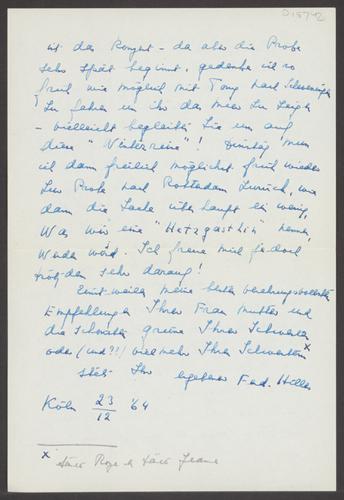 ist das Konzert – da aber die Probe
sehr spät beginnt, gedenke ich so
früh wie möglich mit Tony nach Scheveningen
zu fahren um ihr das Meer zu zeigen
– vielleicht begleiten Sie uns auf
diese "Winterreise"! Dienstag muss
ich dann freilich möglichst früh wieder
zur Probe nach Rotterdam zurück, wo
dann die Sache überhaupt ein wenig,
was wir eine "Hetzgasthin" nennen,
werden wird. Ich freue mich jedoch
trotzdem sehr darauf!
Einstweilen meine besten verehrungsvollsten
Empfehlungen Ihrer Frau Mutter und
die schönsten Grüsse Ihrer Schwester
oder (und?!) vielmehr Ihren Schwestern x
stets Ihr ergebener Ferd. Hiller
Köln 23/12 '64
x